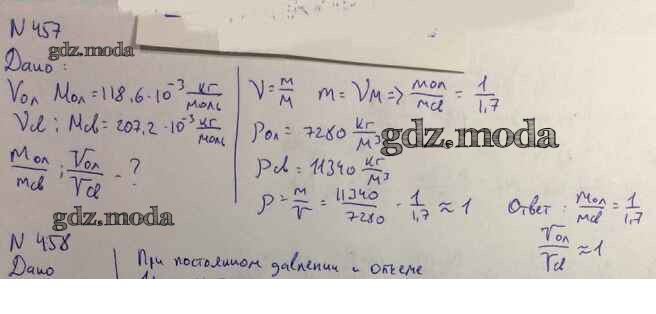 N 457
gdz.moda
Дано:
Vол Mол = 118,6·10⁻³ кг/моль
Vсв ; Mсв = 207,2·10⁻³ кг/моль
mол/mсв ; Vол/Vсв - ?
V = m/M m = VM => mол/mсв = 1/1,7
ρол = 7280 кг/м³
gdz.moda
ρсв = 11340 кг/м³
ρ = m/V = 11340/7280 · 1/1,7 ≈ 1
Ответ : mол/mсв = 1/1,7
Vол/Vсв ≈ 1
gdz.moda
N 458
Дано
При постоянном давлении и объеме